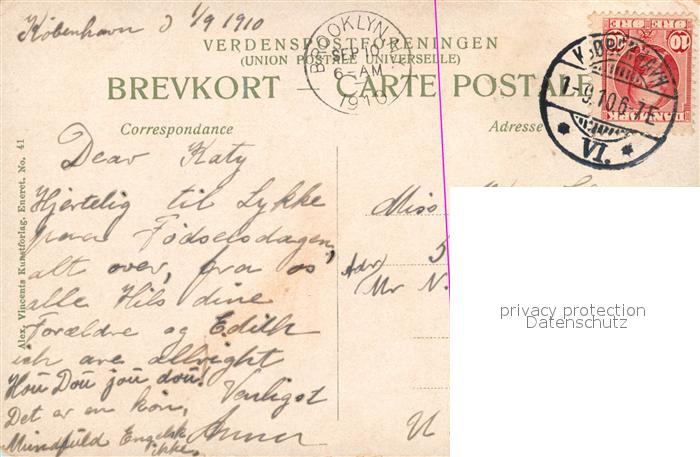 København d 1/9 1910
VERDENSPOSTFORENINGEN
(UNION POSTALE UNIVERSELLE)
BREVKORT — CARTE POSTALE
BROOKLYN, N.Y.
SEP 10
6-AM
1910
KJØBENHAVN
1-9.10.6-7E
VI.
10
DANMARK
Correspondance
Adresse
Alex. Vincents Kunstforlag. Eneret. No. 41
Dear Katy
Hjertelig til Lykke
paa Fødselsdagen,
alt over, fra os
alle Hils dine
Forældre og Edith
ich are allright
Hou Dou jou dou!
Venligst
Det er en køn,
Mundfuld Engelsk
ikke,
Miss
Adr 5
Mr N.
U
privacy protection
Datenschutz